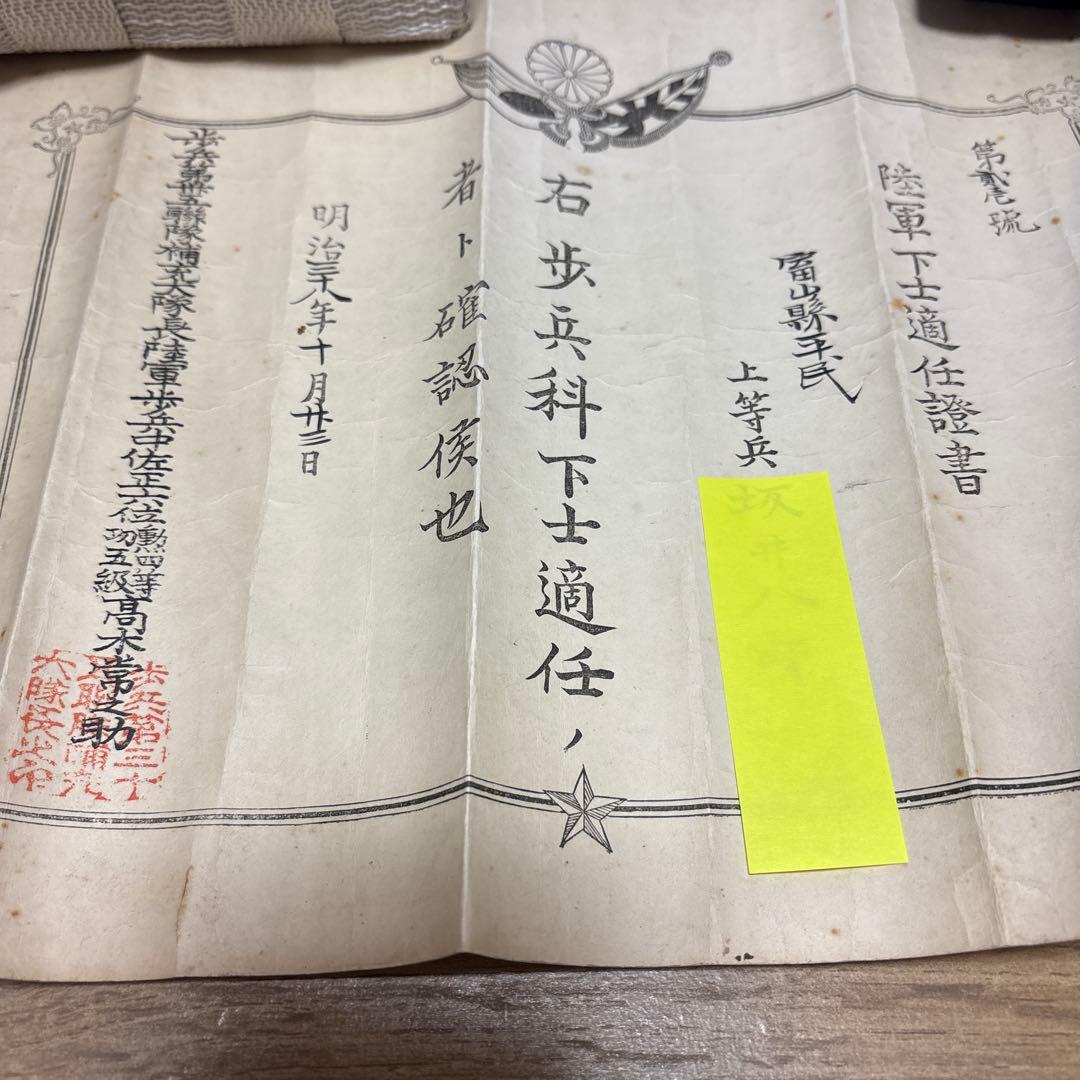 第貳壱號
陸軍下士適任證書
富山縣平民
上等兵
右歩兵科下士適任ノ
者ト確認候也
明治三十八年十月廿三日
歩兵第卅五聯隊補充大隊長陸軍歩兵中佐正六位勲四等功五級高木常之助
歩兵第三十
五聯隊補充
大隊長之印